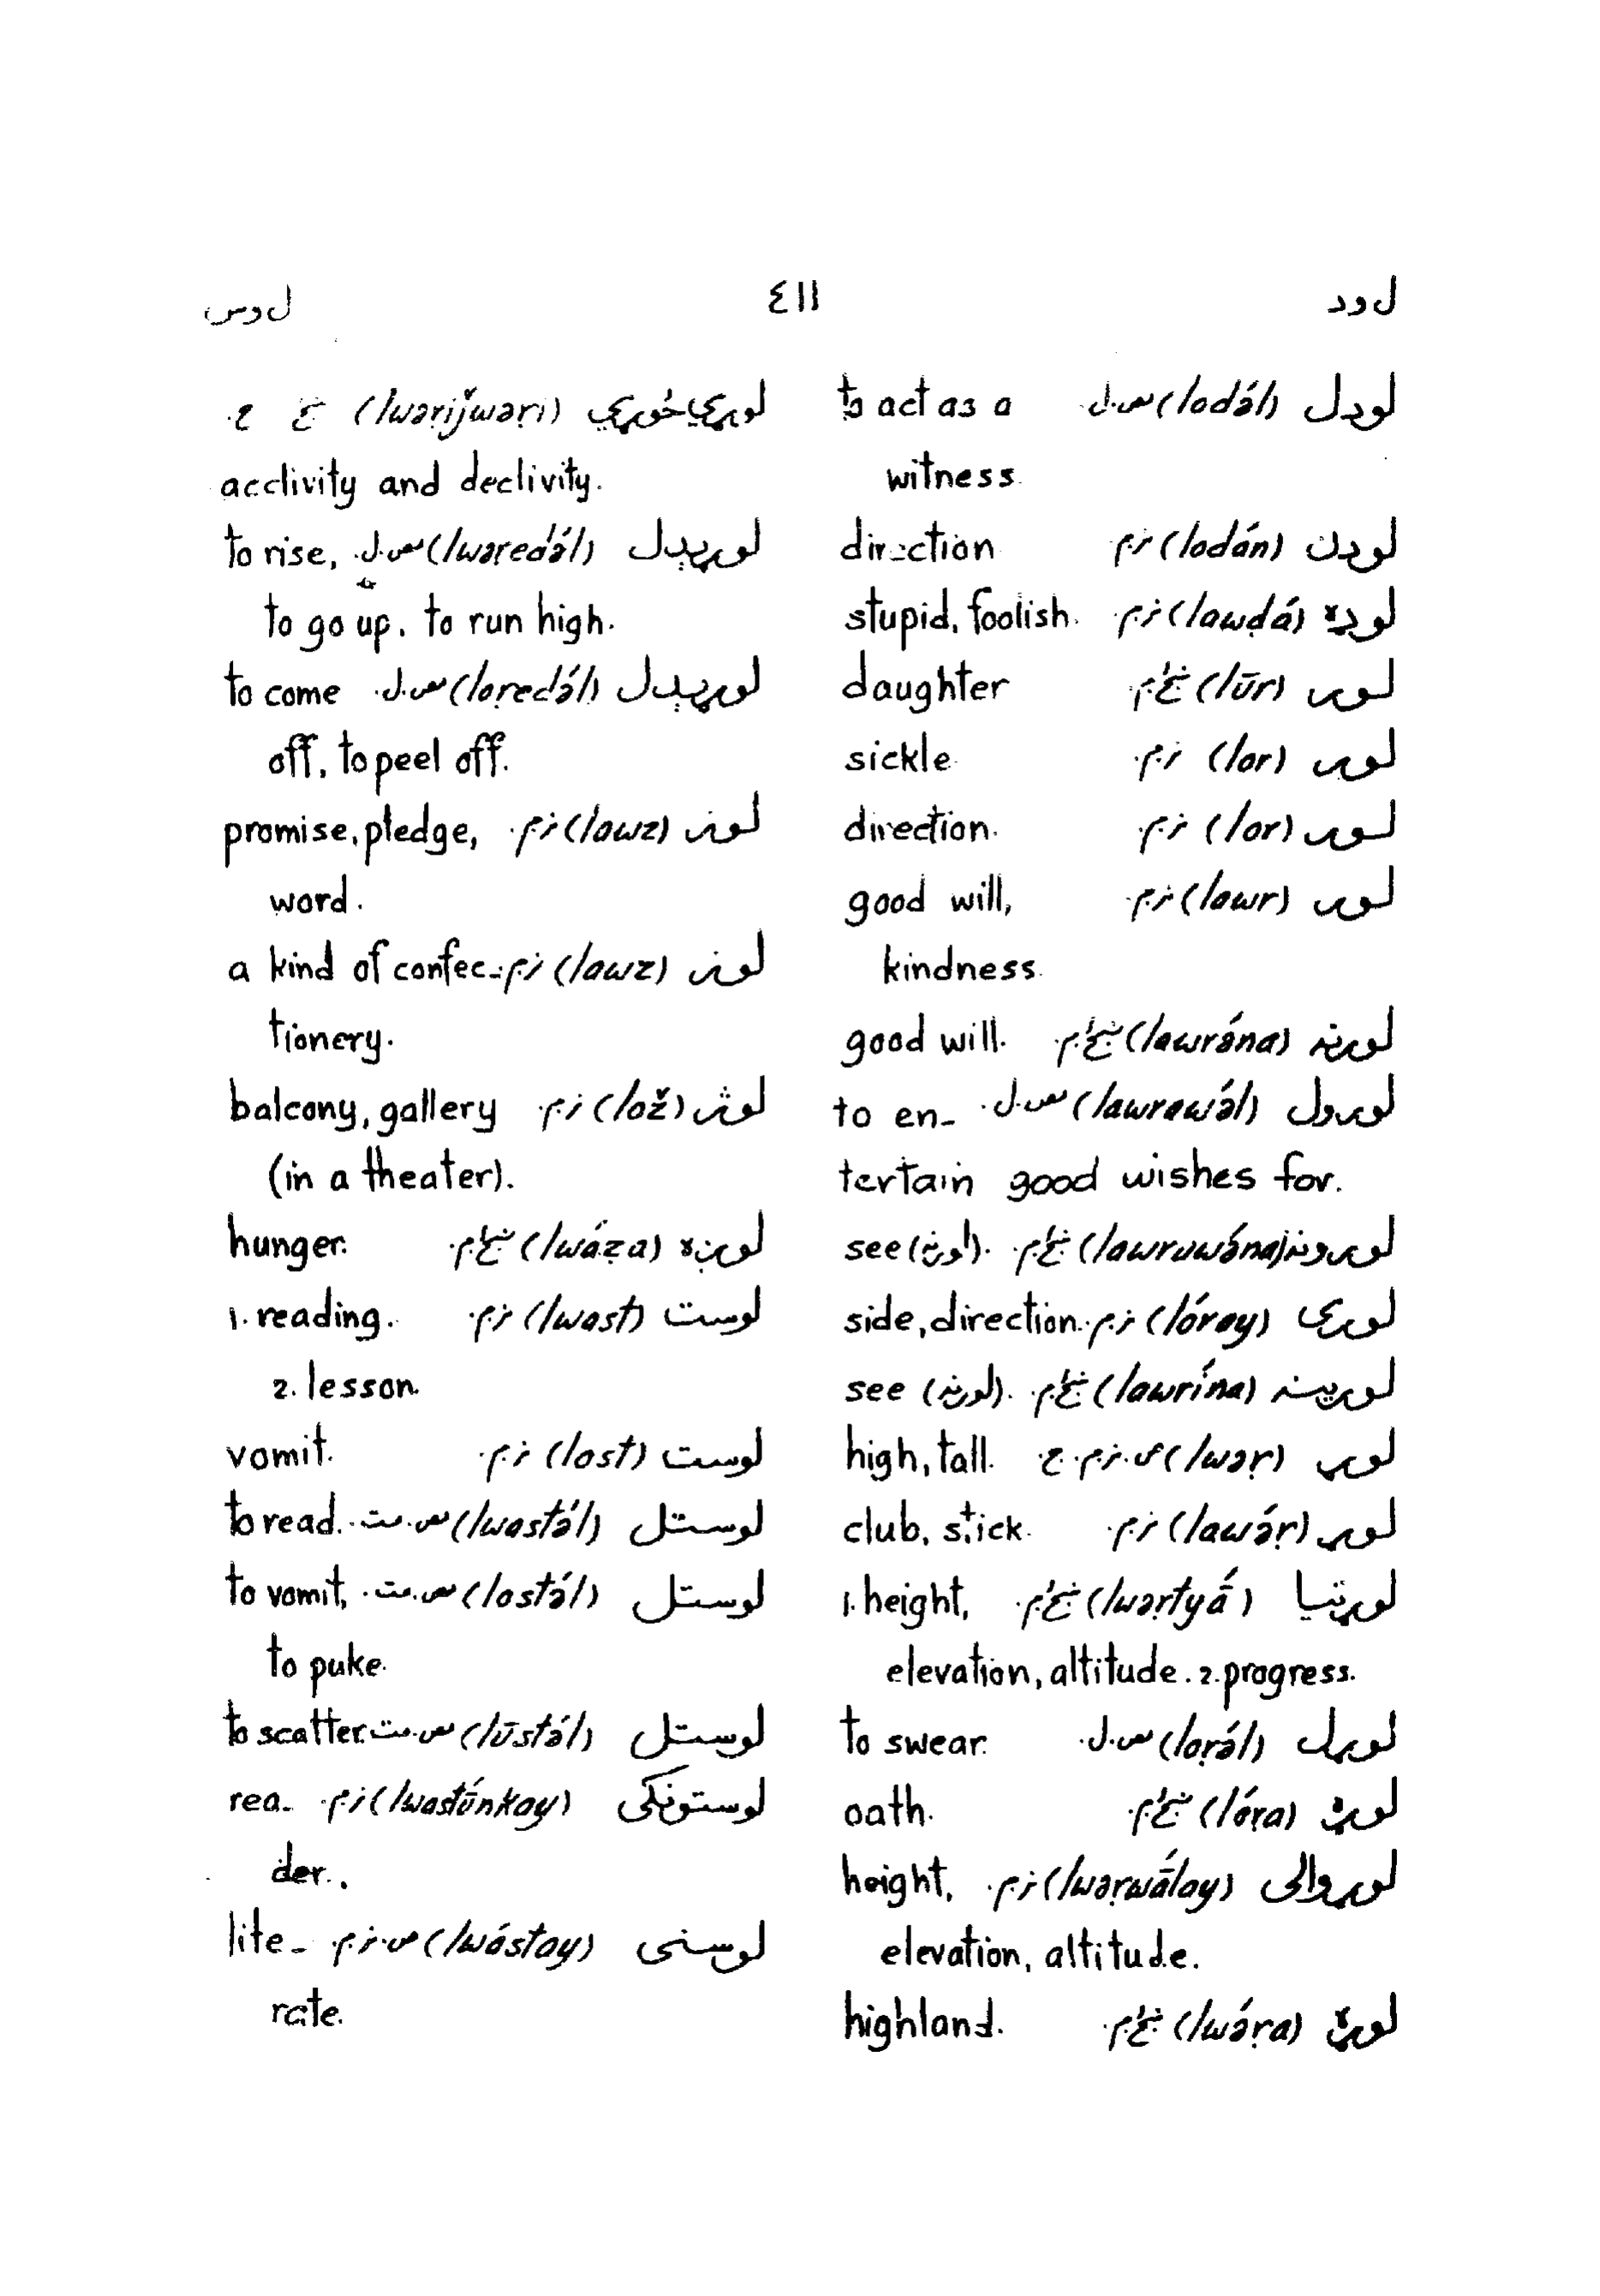 ل ود ٤١١ ل وس
لودل (lodə́l) مص.ل. to act as a
witness.
لودن (lodán) نر.م. direction
لوډه (lawḍá) نر.م. stupid, foolish.
لور (lūr) ښځ.م. daughter
لور (lor) نر.م. sickle
لور (lor) نر.م. direction.
لور (lawr) نر.م. good will,
kindness.
لورنه (lawrə́na) ښځ.م. good will.
لورول (lawrawə́l) مص.ل. to en-
tertain good wishes for.
لورونه (lawrawə́na) ښځ.م. see (لورنه).
لوری (lóray) نر.م. side, direction.
لورينه (lawrína) ښځ.م. see (لورنه).
لوړ (lwəṛ) ص.نر.م.ج. high, tall.
لوړ (lawə́ṛ) نر.م. club, stick.
لوړتيا (lwəṛtyā́) ښځ.م. 1. height,
elevation, altitude. 2. progress.
لوړل (loṛə́l) مص.ل. to swear.
لوړه (lóṛa) ښځ.م. oath.
لوړوالی (lwəṛwā́lay) نر.م. height,
elevation, altitude.
لوړه (lwə́ṛa) ښځ.م. highland.
لوړي ځوړي (lwəṛiǰwəṛi) ښځ ج.
acclivity and declivity.
لوړېدل (lwəṛedə́l) مص.ل. to rise,
to go up, to run high.
لوړېدل (loṛedə́l) مص.ل. to come
off, to peel off.
لوز (lawz) نر.م. promise, pledge,
word.
لوز (lawz) نر.م. a kind of confec-
tionery.
لوژ (lož) نر.م. balcony, gallery
(in a theater).
لوږه (lwáẓa) ښځ.م. hunger.
لوست (lwast) نر.م. 1. reading.
2. lesson.
لوست (lost) نر.م. vomit.
لوستل (lwastə́l) مص.مت. to read.
لوستل (lostə́l) مص.مت. to vomit,
to puke.
لوستل (lūstə́l) مص.مت. to scatter.
لوستونکی (lwastū́nkay) نر.م. rea-
der.
لوستی (lwástay) ص.نر.م. lite-
rate.